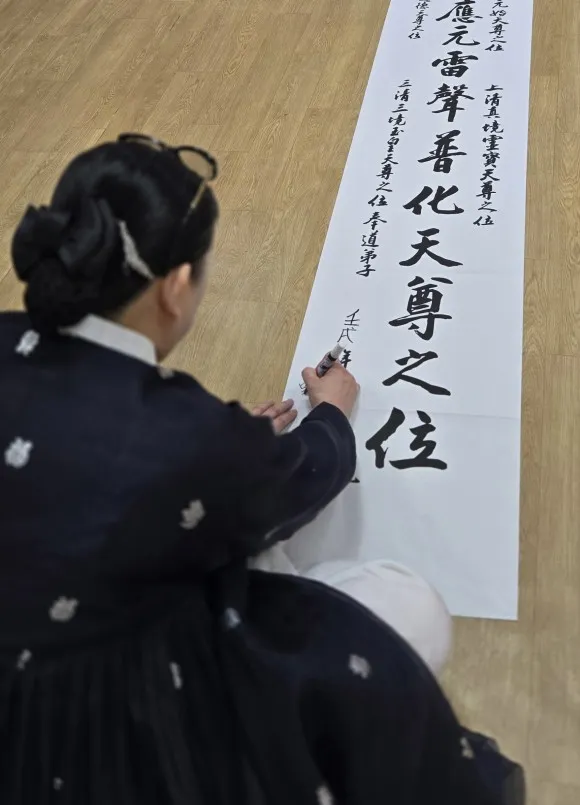 元始天尊之位
上清真境靈寶天尊之位
應元雷聲普化天尊之位
天尊之位
三清三境玉皇天尊之位 奉道弟子
壬戌年